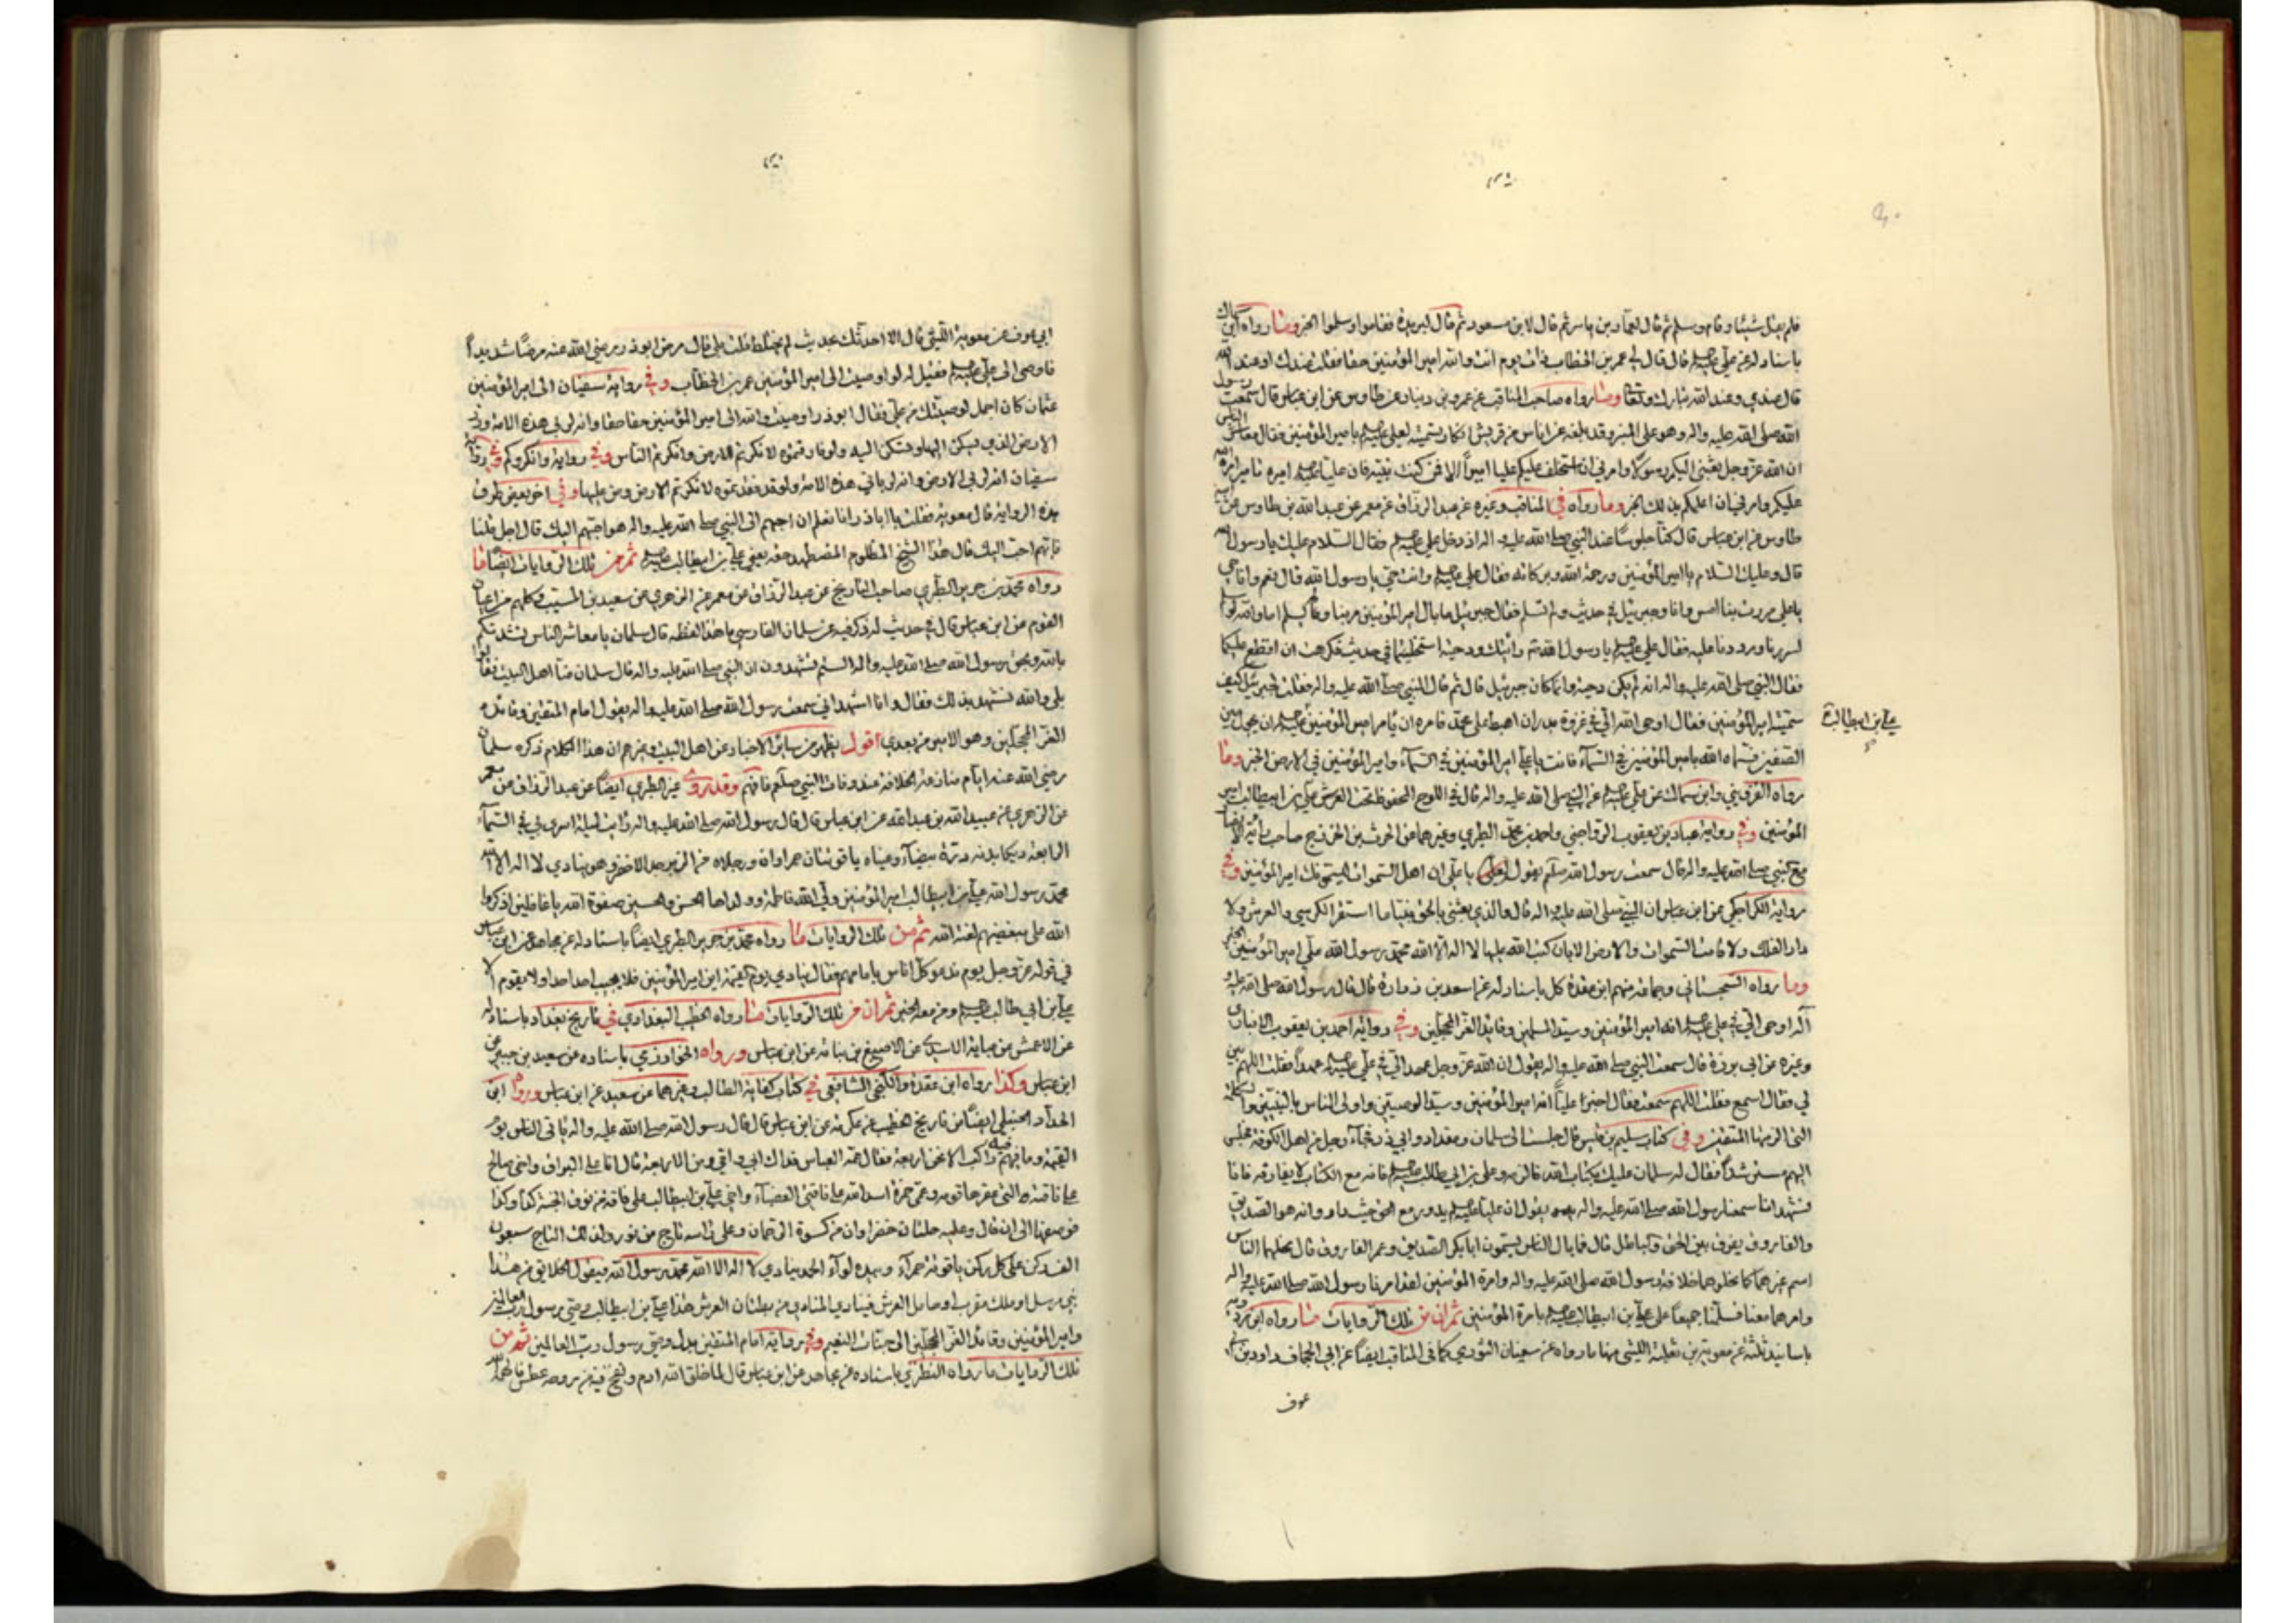 فلم يقل شيئا وقام وسلم ثم قال لعمار بن ياسر ثم قال لابن مسعود ثم قال لبريدة فقاموا وسلموا الخبر ومنها رواه ابن
باسناد له عن علي قال قال لي عمر بن الخطاب ذات يوم انت والله امير المؤمنين حقا فقلت عندك او عند الله
قال عندي وعند الله تبارك وتعالى ومنها رواه صاحب المناقب عن عمرو بن دينار عن طاوس عن ابن عباس قال سمعت رسول
الله صلى الله عليه واله وهو على المنبر وقد بلغه عن اناس من قريش انكار تسميته لعلي بامير المؤمنين فقال معاشر الناس
ان الله عز وجل بعثني اليكم رسولا وامرني ان استخلف عليكم عليا اميرا الا فمن كنت نبيه فان عليا اميره تامير امره الله
عليكم وامرني ان اعلمكم بذلك الخبر وما رواه في المناقب وغيره عن عبد الرزاق عن معمر عن عبد الله بن طاوس عن ابيه
طاوس عن ابن عباس قال كنا جلوسا عند النبي صلى الله عليه واله اذ دخل علي فقال السلام عليك يا رسول الله
قال وعليك السلام يا امير المؤمنين ورحمة الله وبركاته فقال علي وانت حي يا رسول الله قال نعم وانا حي
يا علي مررت بنا امس وانا وجبرئيل في حديث ولم تسلم فقال جبرئيل ما بال امير المؤمنين مر بنا ولم يسلم اما والله لو سلم
لسررنا ورددنا عليه فقال علي يا رسول الله رايتك ودحية استخليتما في حديث فكرهت ان اقطع عليكما
فقال النبي صلى الله عليه واله انه لم يكن دحية وانما كان جبرئيل قال ثم قال النبي صلى الله عليه واله فقلت لجبرئيل كيف
سميته امير المؤمنين فقال اوحى الله الي في غزوة بدر ان اهبط على محمد فامره ان يامر امير المؤمنين ان يجول بين
علي بن ابيطالب
الصفين فسماه الله بامير المؤمنين في السماء فانت يا علي امير المؤمنين في السماء وامير المؤمنين في الارض الخبر وما
رواه القزويني وابن سماك عن علي عن النبي صلى الله عليه واله قال في اللوح المحفوظ تحت العرش علي بن ابيطالب امير
المؤمنين وفي رواية عباد بن يعقوب الرواجني واحمد بن محمد الطبري وغيرهما عن الحرث بن الخزرج صاحب راية الانصار
مع النبي صلى الله عليه واله قال سمعت رسول الله صلم يقول لعلي يا علي ان اهل السموات ليسمونك امير المؤمنين وفي
رواية الكراجكي عن ابن عباس ان النبي صلى الله عليه واله قال والذي بعثني بالحق نبيا ما استقر الكرسي والعرش ولا
دار الفلك ولا قامت السموات والارض الا بان كتب الله عليها لا اله الا الله محمد رسول الله علي امير المؤمنين الخبر
وما رواه السجستاني وجماعة منهم ابن عقدة كل باسناد له عن اسعد بن زرارة قال قال رسول الله صلى الله عليه و
اله اوحى الي في علي انه امير المؤمنين وسيد المسلمين وقائد الغر المحجلين وفي رواية احمد بن يعقوب الانباري
وغيره عن ابي برزة قال سمعت النبي صلى الله عليه واله يقول ان الله عز وجل عهد الي في علي عهدا فقلت اللهم بين
لي فقال اسمع فقلت اللهم سمعت فقال اخبر عليا انه امير المؤمنين وسيد الوصيين واولى الناس بالنبيين والكلمة
التي الزمها المتقين وفي كتاب سليم بن قيس قال جلست الى سلمان ومقداد وابي ذر فجاء رجل من اهل الكوفة فجلس
اليهم مسترشدا فقال له سلمان عليك بكتاب الله فالزمه وعلي بن ابي طالب فانه مع الكتاب لا يفارقه فانا
نشهد انا سمعنا رسول الله صلى الله عليه واله يقول ان عليا يدور مع الحق حيث دار وانه هو الصديق
والفاروق يفرق بين الحق والباطل قال فما بال الناس يسمون ابابكر الصديق وعمر الفاروق قال نحلهما الناس
اسم غيرهما كما نحلوهما خلافة رسول الله صلى الله عليه واله وامرة المؤمنين لقد امرنا رسول الله صلى الله عليه واله
وامرهما معنا فسلمنا جميعا على علي بن ابيطالب بامرة المؤمنين ثم ان من تلك الروايات ما رواه ابن مردويه
باسانيد ثلثة عن معوية بن ثعلبة الليثي منها ما رواه عن سفيان الثوري كما في المناقب ايضا عن ابي الجحاف داود بن ابي
عوف
ابي عوف عن معوية الليثي قال الا احدثك بحديث لم يختلط قلت بلى قال مرض ابوذر رضي الله عنه مرضا شديدا
فاوصى الى علي فقيل له لو اوصيت الى امير المؤمنين عمر بن الخطاب وفي رواية سفيان الى امير المؤمنين
عثمان كان اجمل لوصيتك من علي فقال ابوذر اوصيت والله الى امير المؤمنين حقا حقا وانه لربي هذه الامة ورب
الارض الذي يسكن اليها وتسكن اليه ولو فارقتموه لانكرتم الارض وانكرتم الناس وفي رواية وانكروكم وفي رواية
سفيان انه لربي الارض وانه لرباني هذه الامة ولو قد فقدتموه لانكرتم الارض ومن عليها وفي اخر بعض طرق
هذه الرواية قال معوية فقلت يا اباذر انا نعلم ان احبهم الى النبي صلى الله عليه واله هو احبهم اليك قال اجل قلنا
فايهم احب اليك قال هذا الشيخ المظلوم المضطهد حقه يعني علي بن ابيطالب ثم من تلك الروايات ايضا ما
رواه محمد بن جرير الطبري صاحب التاريخ عن عبد الرزاق عن معمر عن الزهري عن سعيد بن المسيب وكلهم من اعيان
القوم عن ابن عباس قال في حديث له ذكر فيه عن سلمان الفارسي ما هذا لفظه قال سلمان يا معاشر الناس نشدتكم
بالله وبحق رسول الله صلى الله عليه واله الستم تشهدون ان النبي صلى الله عليه واله قال سلمان منا اهل البيت فقالوا
بلى والله نشهد بذلك فقال وانا اشهد اني سمعت رسول الله صلى الله عليه واله يقول امام المتقين وقائد
الغر المحجلين وهو الامير من بعدي اقول يظهر من سائر الاخبار عن اهل البيت وغيرهم ان هذا الكلام ذكره سلمان
رضي الله عنه ايام منازعة الخلافة عند وفات النبي صلم فافهم وقد روى عن الطبري ايضا عن عبد الرزاق عن معمر
عن الزهري عن عبيد الله بن عبد الله عن ابن عباس قال قال رسول الله صلى الله عليه واله رايت ليلة اسري بي في السماء
الرابعة ديكا بدنه درة بيضاء وعيناه ياقوتتان حمراوان ورجلاه من الزبرجد الاخضر وهو ينادي لا اله الا الله
محمد رسول الله علي بن ابيطالب امير المؤمنين ولي الله فاطمة وولداها الحسن والحسين صفوة الله يا غافلين اذكروا
الله على مبغضيهم لعنة الله ثم من تلك الروايات ما رواه محمد بن جرير الطبري ايضا باسناد له عن مجاهد عن ابن عباس
في قوله عز وجل يوم ندعو كل اناس بامامهم فقال ينادي يوم القيمة اين امير المؤمنين فلا يجيب احد احدا ولا يقوم الا
علي بن ابي طالب ومن معه الخبر ثم ان من تلك الروايات ما رواه الخطيب البغدادي في تاريخ بغداد باسناد له
عن الاعمش عن عباية الاسدي عن الاصبغ بن نباتة عن ابن عباس ورواه الخوارزمي باسناده عن سعيد بن جبير عن
ابن عباس وكذا رواه ابن عقدة والكنجي الشافعي في كتاب كفاية الطالب وغيرهما عن سعيد عن ابن عباس ورواه ابن
الحداد الحنبلي ايضا من تاريخ الخطيب عن عكرمة عن ابن عباس قال قال رسول الله صلى الله عليه واله ياتي الناس يوم
القيمة وما فيهم راكب الا نحن اربعة فقال عمه العباس فداك ابي وامي ومن الاربعة قال انا على البراق واخي صالح
على ناقته التي عقرها قومه وعمي حمزة اسد الله على ناقتي العضباء واخي علي بن ابيطالب على ناقة من نوق الجنة كذا وكذا
فوصفها الى ان قال وعليه حلتان خضراوان من كسوة الرحمان وعلى راسه تاج من نور ولذلك التاج سبعون
الف ركن على كل ركن ياقوتة حمراء وبيده لواء الحمد ينادي لا اله الا الله محمد رسول الله فيقول الخلائق من هذا
نبي مرسل او ملك مقرب او حامل العرش فينادي المنادي من بطنان العرش هذا علي بن ابيطالب وصي رسول رب العالمين
وامير المؤمنين وقائد الغر المحجلين الى جنات النعيم وفي رواية امام المتقين بدل وصي رسول رب العالمين ثم من
تلك الروايات ما رواه النطنزي باسناده عن مجاهد عن ابن عباس قال لما خلق الله ادم ونفخ فيه من روحه عطس فالهمه الله